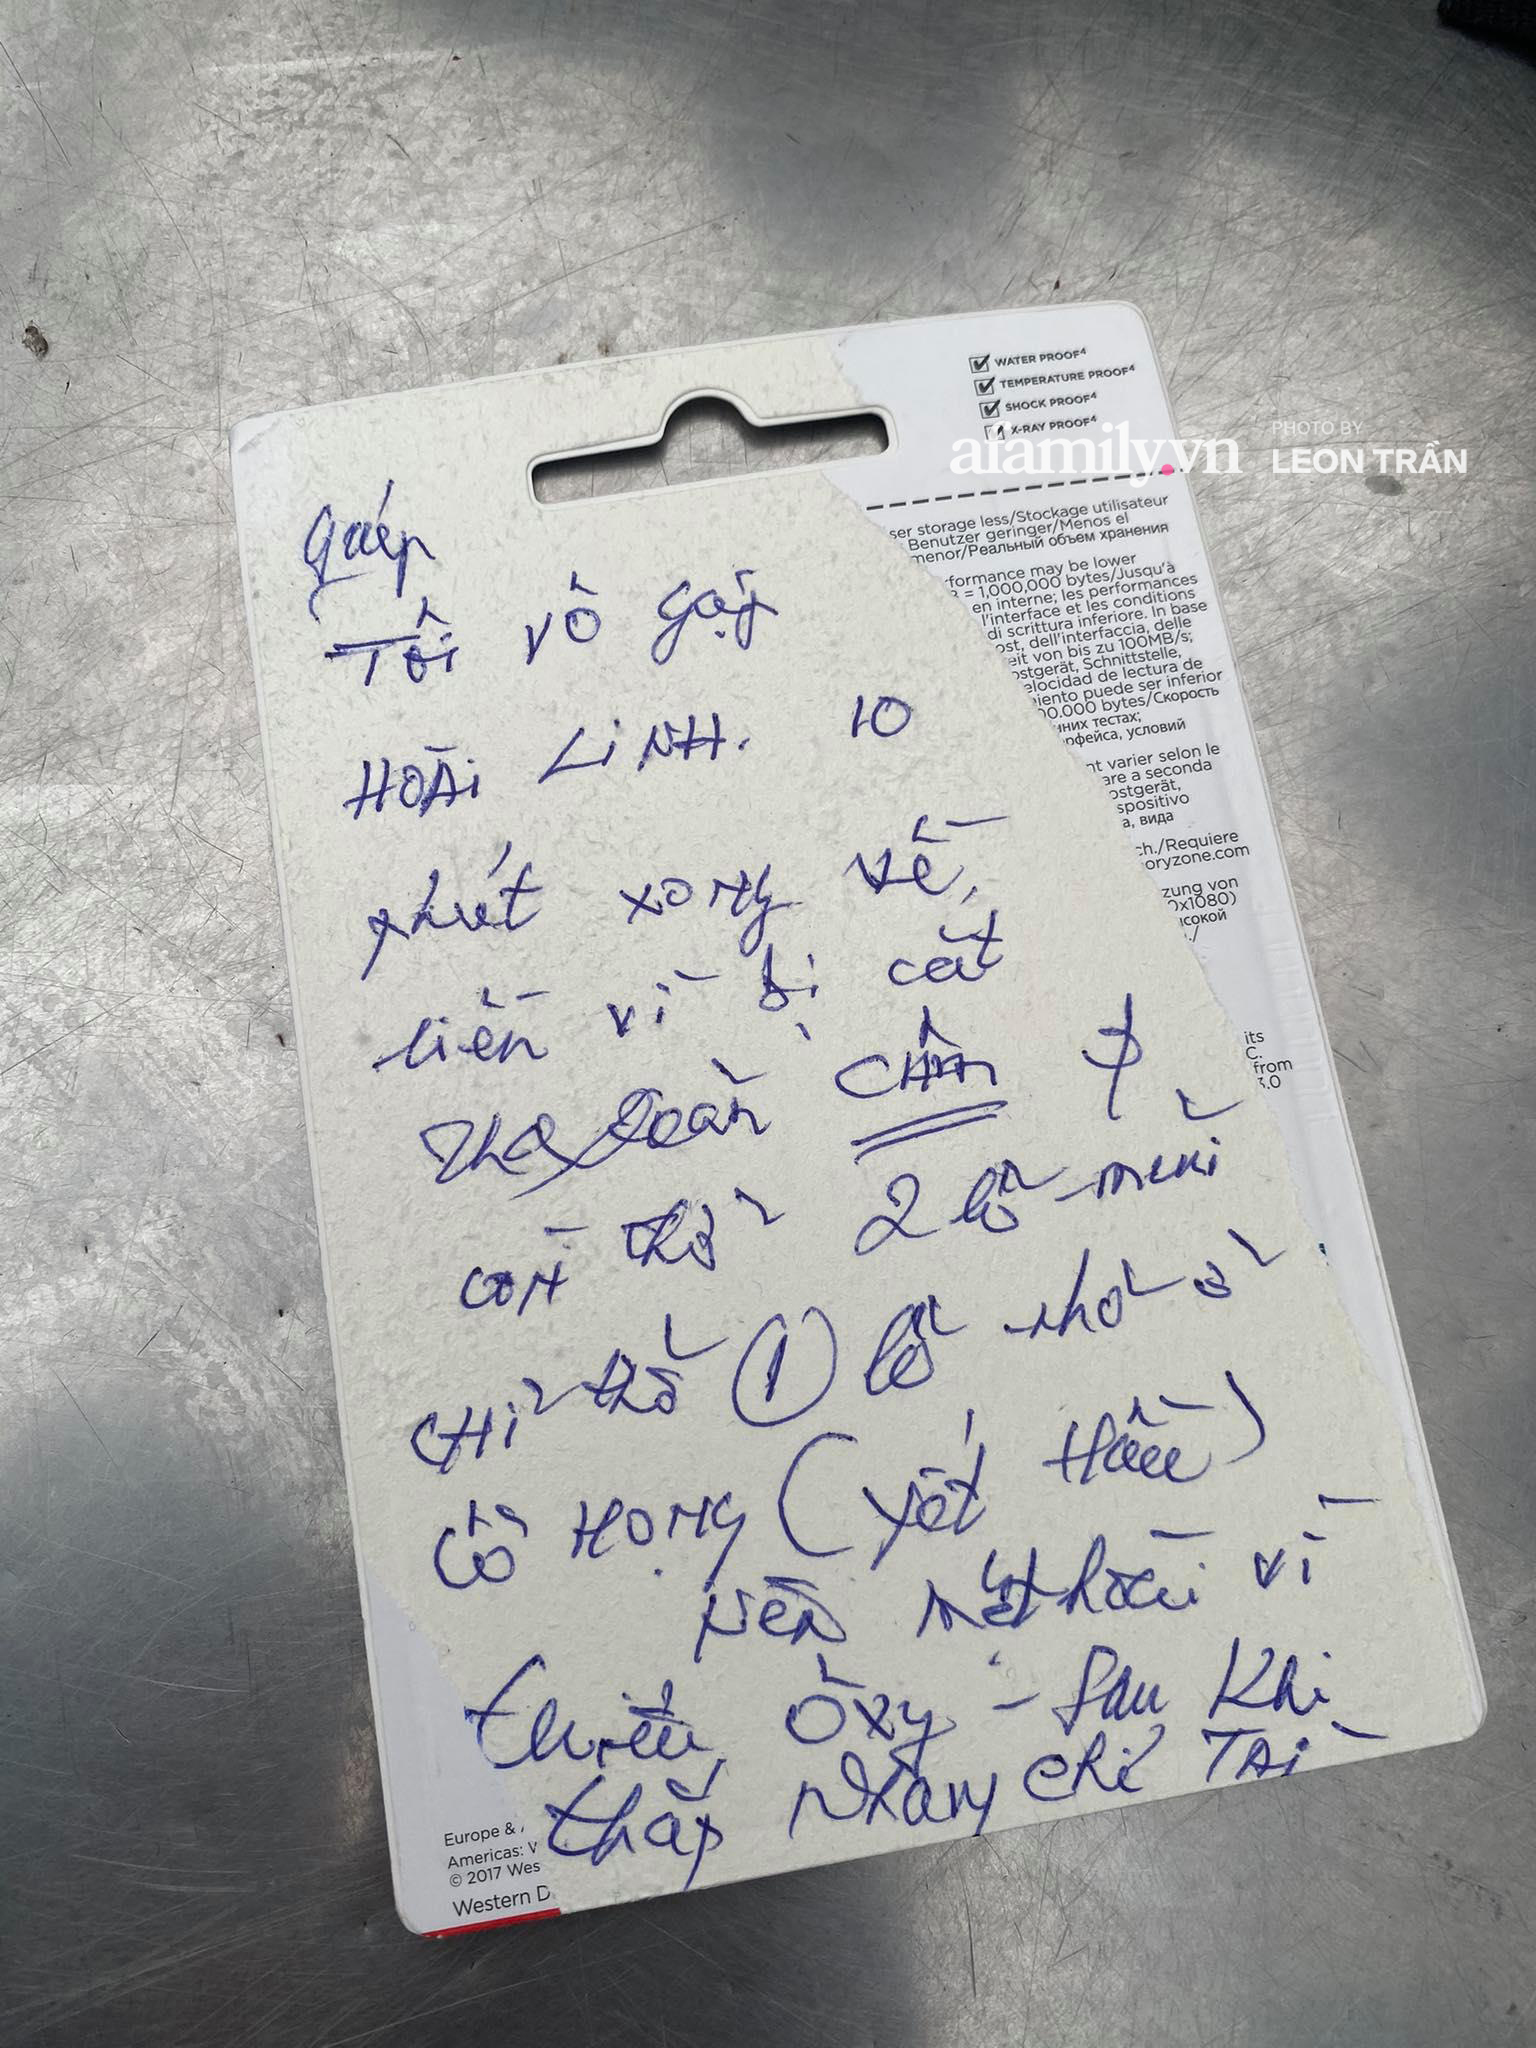 WATER PROOF⁴
TEMPERATURE PROOF⁴
SHOCK PROOF⁴
X-RAY PROOF⁴
afamily.vn
PHOTO BY
LEON TRẦN
ser storage less/Stockage utilisateur
Benutzer geringer/Menos el
menor/Реальный объем хранения
rformance may be lower
= 1,000,000 bytes/Jusqu'à
en interne; les performances
l'interface et les conditions
di scrittura inferiore. In base
ost, dell'interfaccia, delle
eit von bis zu 100MB/s;
ostgerät, Schnittstelle,
elocidad de lectura de
miento puede ser inferior
00.000 bytes/Скорость
нних тестах;
рфейса, условий
nt varier selon le
are a seconda
ostgerät,
spositivo
а, вида
ch./Requiere
oryzone.com
zung von
0x1080)
ысокой
its
C.
from
3.0
Tôi vô gặp
HOÀi LiNH. 10
phút xong về
liền vì bị cắt
CHÂN
còn thở 2 lổ mũi
CHỉ thở 1 lổ nhỏ ở
Cổ HọNg (yết Hầu)
NêN mệt hoài vì
thiếu Ôxy - Sau Khi
thắp Nhang CHÍ TÀi
Europe &
Americas: W
© 2017 Wes
Western D